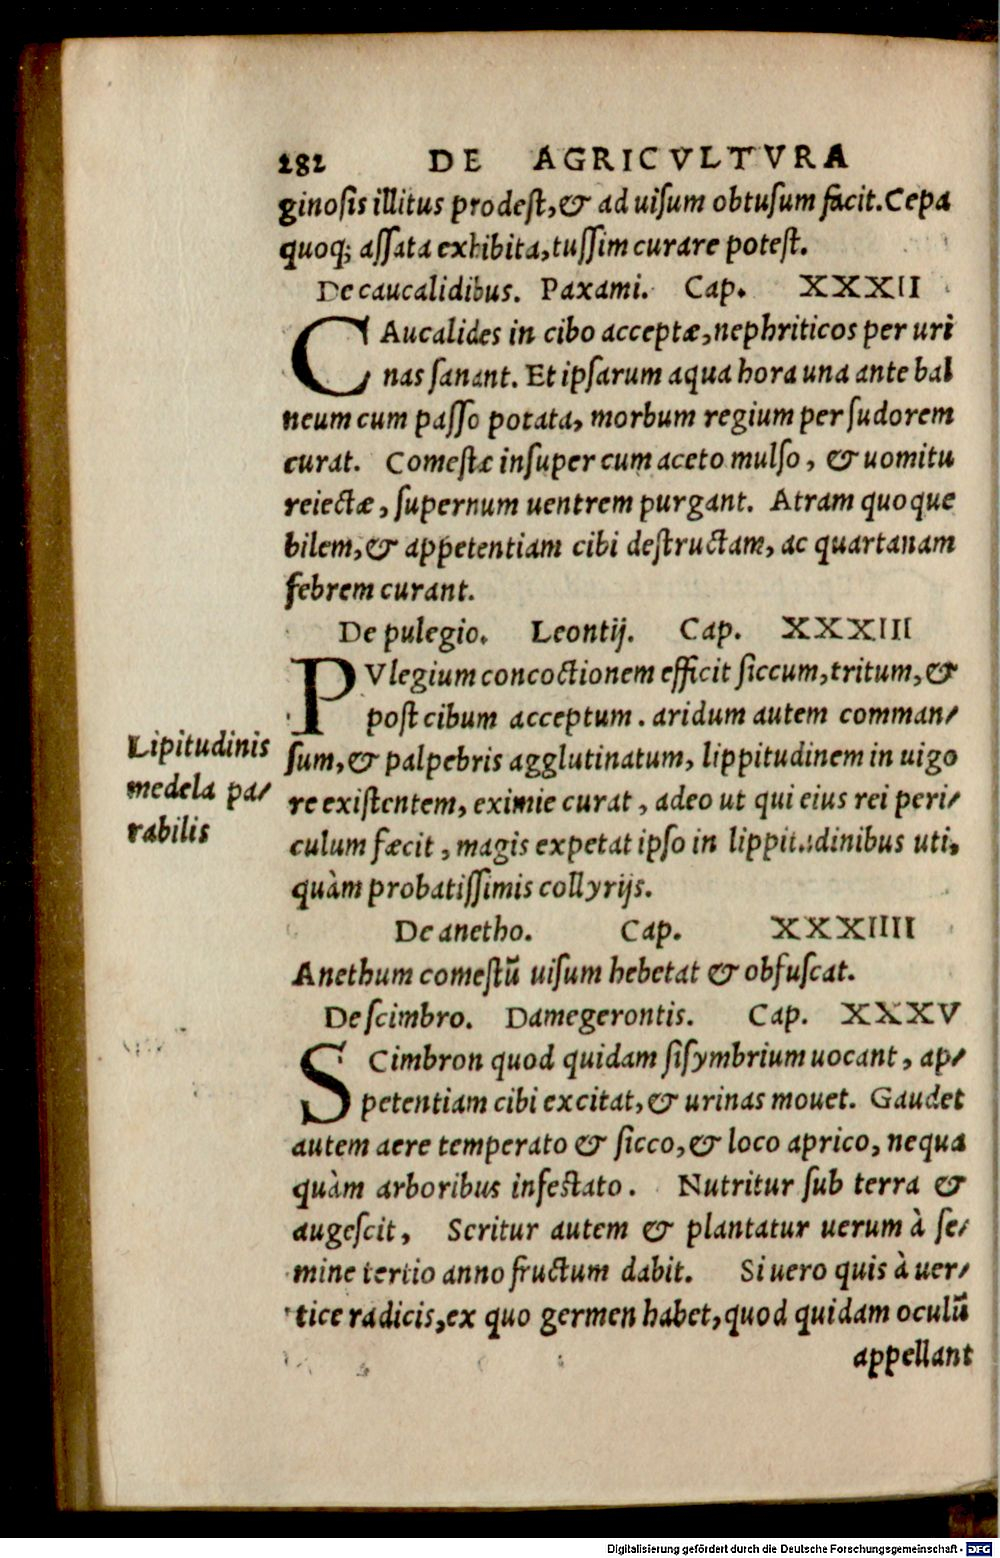 282 DE AGRICVLTVRA
ginosis illitus prodest, & ad uisum obtusum facit. Cepa
quoq; assata exhibita, tussim curare potest.
De caucalidibus. Paxami. Cap. XXXII
CAucalides in cibo acceptæ, nephriticos per uri
nas sanant. Et ipsarum aqua hora una ante bal
neum cum passo potata, morbum regium per sudorem
curat. Comestæ insuper cum aceto mulso, & uomitu
reiectæ, supernum uentrem purgant. Atram quoque
bilem, & appetentiam cibi destructam, ac quartanam
febrem curant.
De pulegio. Leontij. Cap. XXXIII
PVlegium concoctionem efficit siccum, tritum, &
post cibum acceptum. aridum autem comman-
Lipitudinis
medela pa-
rabilis
sum, & palpebris agglutinatum, lippitudinem in uigo
re existentem, eximie curat, adeo ut qui eius rei peri-
culum fæcit, magis expetat ipso in lippitudinibus uti,
quàm probatissimis collyrijs.
De anetho. Cap. XXXIIII
Anethum comestũ uisum hebetat & obfuscat.
De scimbro. Damegerontis. Cap. XXXV
SCimbron quod quidam sisymbrium uocant, ap-
petentiam cibi excitat, & urinas mouet. Gaudet
autem aere temperato & sicco, & loco aprico, nequa
quàm arboribus infestato. Nutritur sub terra &
augescit, Seritur autem & plantatur uerum à se-
mine tertio anno fructum dabit. Si uero quis à uer-
tice radicis, ex quo germen habet, quod quidam oculũ
appellant
Digitalisierung gefördert durch die Deutsche Forschungsgemeinschaft - DFG